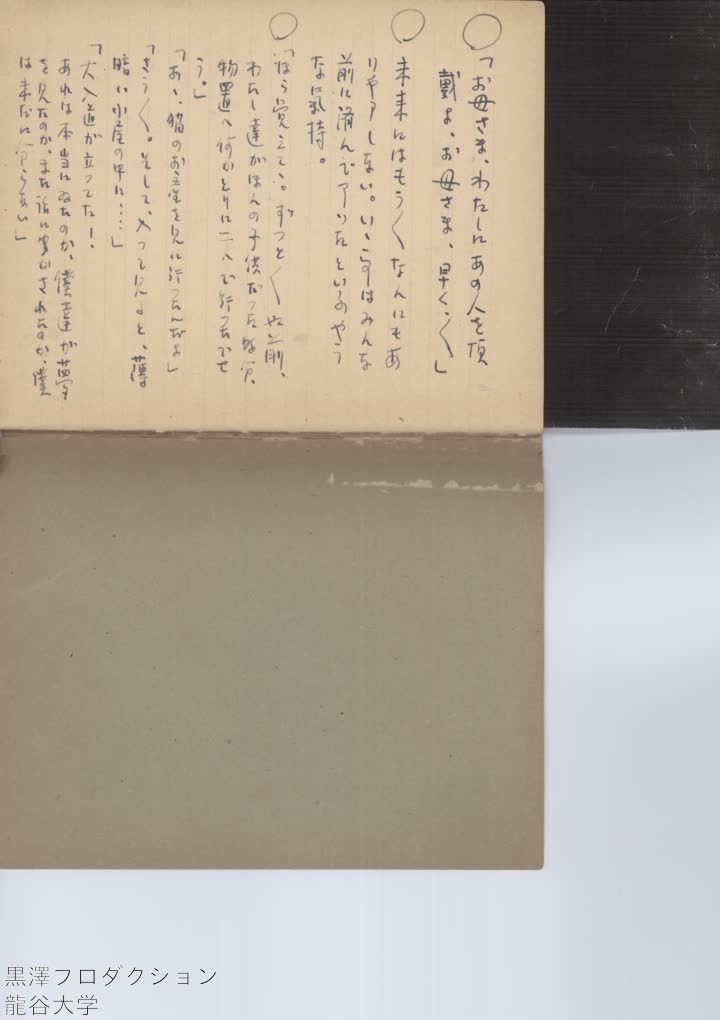 ○「お母さま、わたしにあの人を頂
戴よ、お母さま、早く〱」
○未来にはもう〱なんにもあ
りやアしない。いゝ事はみんな
前に済んでアつたといふやう
な気持。
○「ほら覚えてゝ。ずつと〱お前、
わたし達がほんの子供だつた時分、
物置へ何かとりに二人で行つたでせ
う。」
「あゝ、猫のお産を見に行つたんだよ」
「さう〱。そして、入つて見ると、薄
暗い小屋の中に……」
「大入道が立つてた！
あれは本当にゐたのか、僕達が夢
を見たのか、また話に聞かされたのか、僕
は未だに分らない」
黒澤プロダクション
龍谷大学